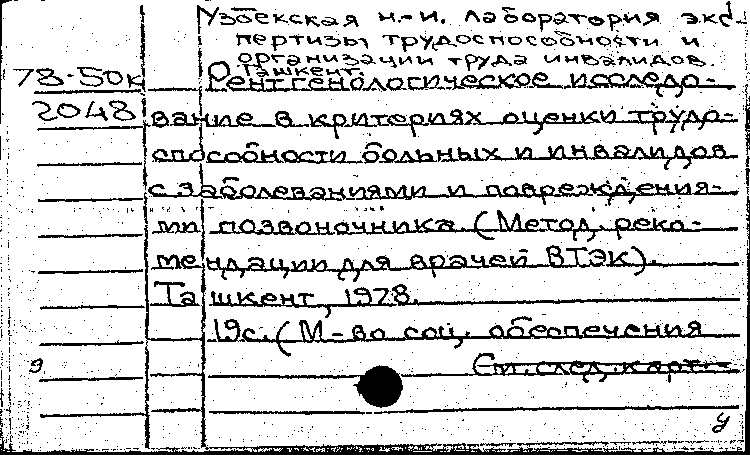 Узбекская н.-и. лаборатория экс-
пертизы трудоспособности и
организации труда инвалидов.
Ташкент.
78-50к Рентгенологическое исследо-
2048 вание в критериях оценки трудо-
способности больных и инвалидов
с заболеваниями и повреждения-
ми позвоночника. (Метод. реко-
мендации для врачей ВТЭК).
Ташкент, 1978.
19с. (М-во соц. обеспечения
См. след. карт.
9
у